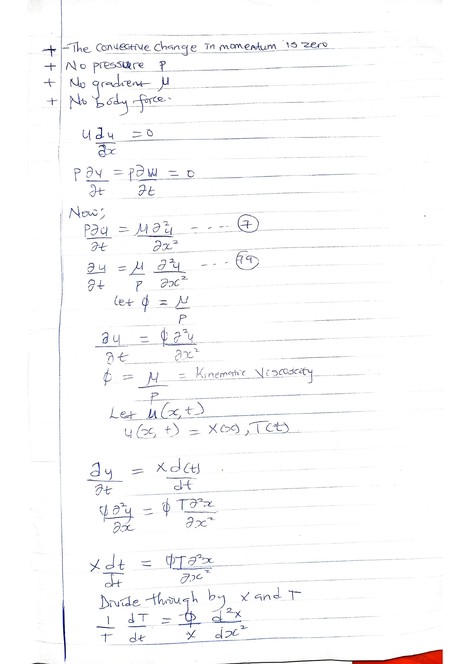 + - The convective change in momentum is zero
+ No pressure P
+ No gradient μ
+ No body force.
u ∂u/∂x = 0
ρ ∂v/∂t = ρ ∂w/∂t = 0
Now;
ρ∂u/∂t = μ∂²u/∂x² ---- ⑦
∂u/∂t = μ/ρ ∂²u/∂x² ---- (7a)
Let ϕ = μ/ρ
∂u/∂t = ϕ∂²u/∂x²
ϕ = μ/ρ = Kinematic Viscosity
Let u(x,t)
u(x,t) = X(x), T(t)
∂u/∂t = x d(t)/dt
ϕ∂²u/∂x = ϕ T∂²x/∂x²
x dt/dt = ϕT∂²x/∂x²
Divide through by x and T
1/T dT/dt = ϕ/x d²x/dx²